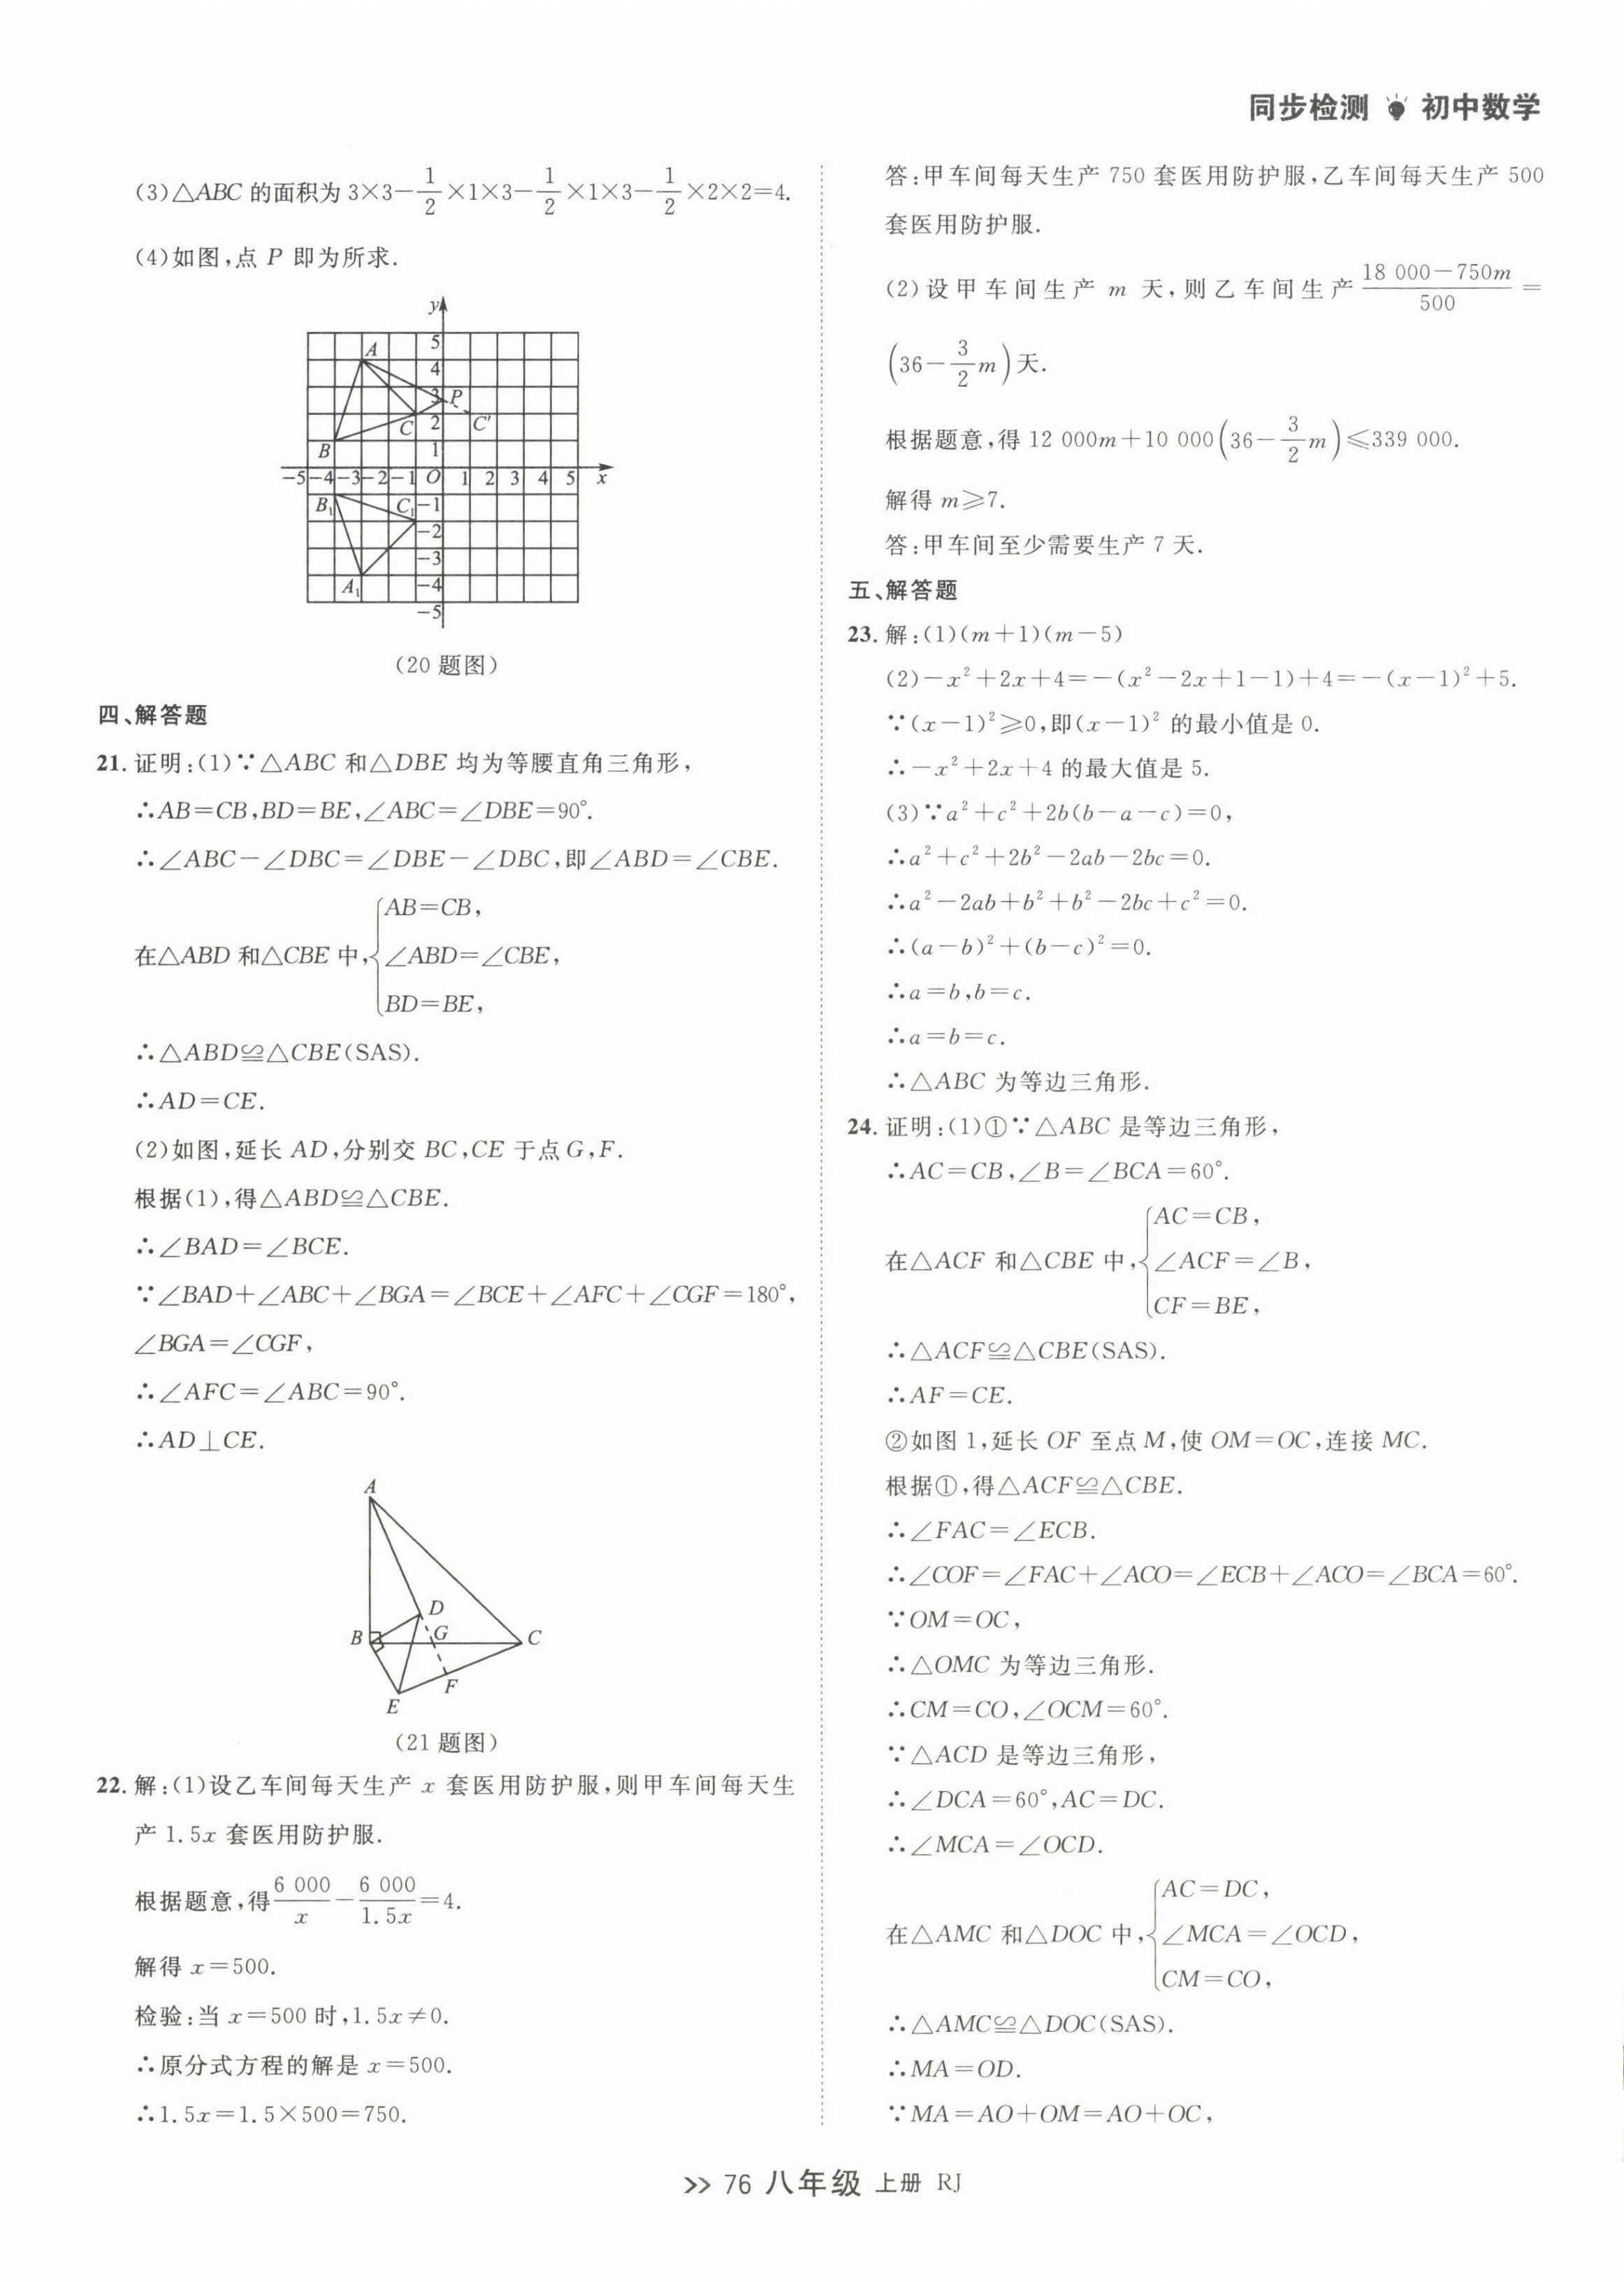 同步检测 初中数学
(3)△ABC 的面积为 3×3−1/2×1×3−1/2×1×3−1/2×2×2=4.
(4)如图,点 P 即为所求.
y
5
A
4
3 P
C 2 C′
B 1
−5 −4 −3 −2 −1 O 1 2 3 4 5 x
B₁ C₁ −1
−2
−3
A₁ −4
−5
(20 题图)
四、解答题
21. 证明:(1)∵△ABC 和△DBE 均为等腰直角三角形,
∴AB=CB,BD=BE,∠ABC=∠DBE=90°.
∴∠ABC−∠DBC=∠DBE−∠DBC,即∠ABD=∠CBE.
AB=CB,
在△ABD 和△CBE 中,{∠ABD=∠CBE,
BD=BE,
∴△ABD≌△CBE(SAS).
∴AD=CE.
(2)如图,延长 AD,分别交 BC,CE 于点 G,F.
根据(1),得△ABD≌△CBE.
∴∠BAD=∠BCE.
∵∠BAD+∠ABC+∠BGA=∠BCE+∠AFC+∠CGF=180°,
∠BGA=∠CGF,
∴∠AFC=∠ABC=90°.
∴AD⊥CE.
A
D
B G C
F
E
(21 题图)
22. 解:(1)设乙车间每天生产 x 套医用防护服,则甲车间每天生
产 1.5x 套医用防护服.
根据题意,得 6 000/x − 6 000/1.5x =4.
解得 x=500.
检验:当 x=500 时,1.5x≠0.
∴原分式方程的解是 x=500.
∴1.5x=1.5×500=750.
答:甲车间每天生产 750 套医用防护服,乙车间每天生产 500
套医用防护服.
(2)设甲车间生产 m 天,则乙车间生产 (18 000−750m)/500 =
(36−3/2m)天.
根据题意,得 12 000m+10 000(36−3/2m)≤339 000.
解得 m≥7.
答:甲车间至少需要生产 7 天.
五、解答题
23. 解:(1)(m+1)(m−5)
(2)−x²+2x+4=−(x²−2x+1−1)+4=−(x−1)²+5.
∵(x−1)²≥0,即(x−1)² 的最小值是 0.
∴−x²+2x+4 的最大值是 5.
(3)∵a²+c²+2b(b−a−c)=0,
∴a²+c²+2b²−2ab−2bc=0.
∴a²−2ab+b²+b²−2bc+c²=0.
∴(a−b)²+(b−c)²=0.
∴a=b,b=c.
∴a=b=c.
∴△ABC 为等边三角形.
24. 证明:(1)①∵△ABC 是等边三角形,
∴AC=CB,∠B=∠BCA=60°.
AC=CB,
在△ACF 和△CBE 中,{∠ACF=∠B,
CF=BE,
∴△ACF≌△CBE(SAS).
∴AF=CE.
②如图 1,延长 OF 至点 M,使 OM=OC,连接 MC.
根据①,得△ACF≌△CBE.
∴∠FAC=∠ECB.
∴∠COF=∠FAC+∠ACO=∠ECB+∠ACO=∠BCA=60°.
∵OM=OC,
∴△OMC 为等边三角形.
∴CM=CO,∠OCM=60°.
∵△ACD 是等边三角形,
∴∠DCA=60°,AC=DC.
∴∠MCA=∠OCD.
AC=DC,
在△AMC 和△DOC 中,{∠MCA=∠OCD,
CM=CO,
∴△AMC≌△DOC(SAS).
∴MA=OD.
∵MA=AO+OM=AO+OC,
>> 76 八年级 上册 RJ